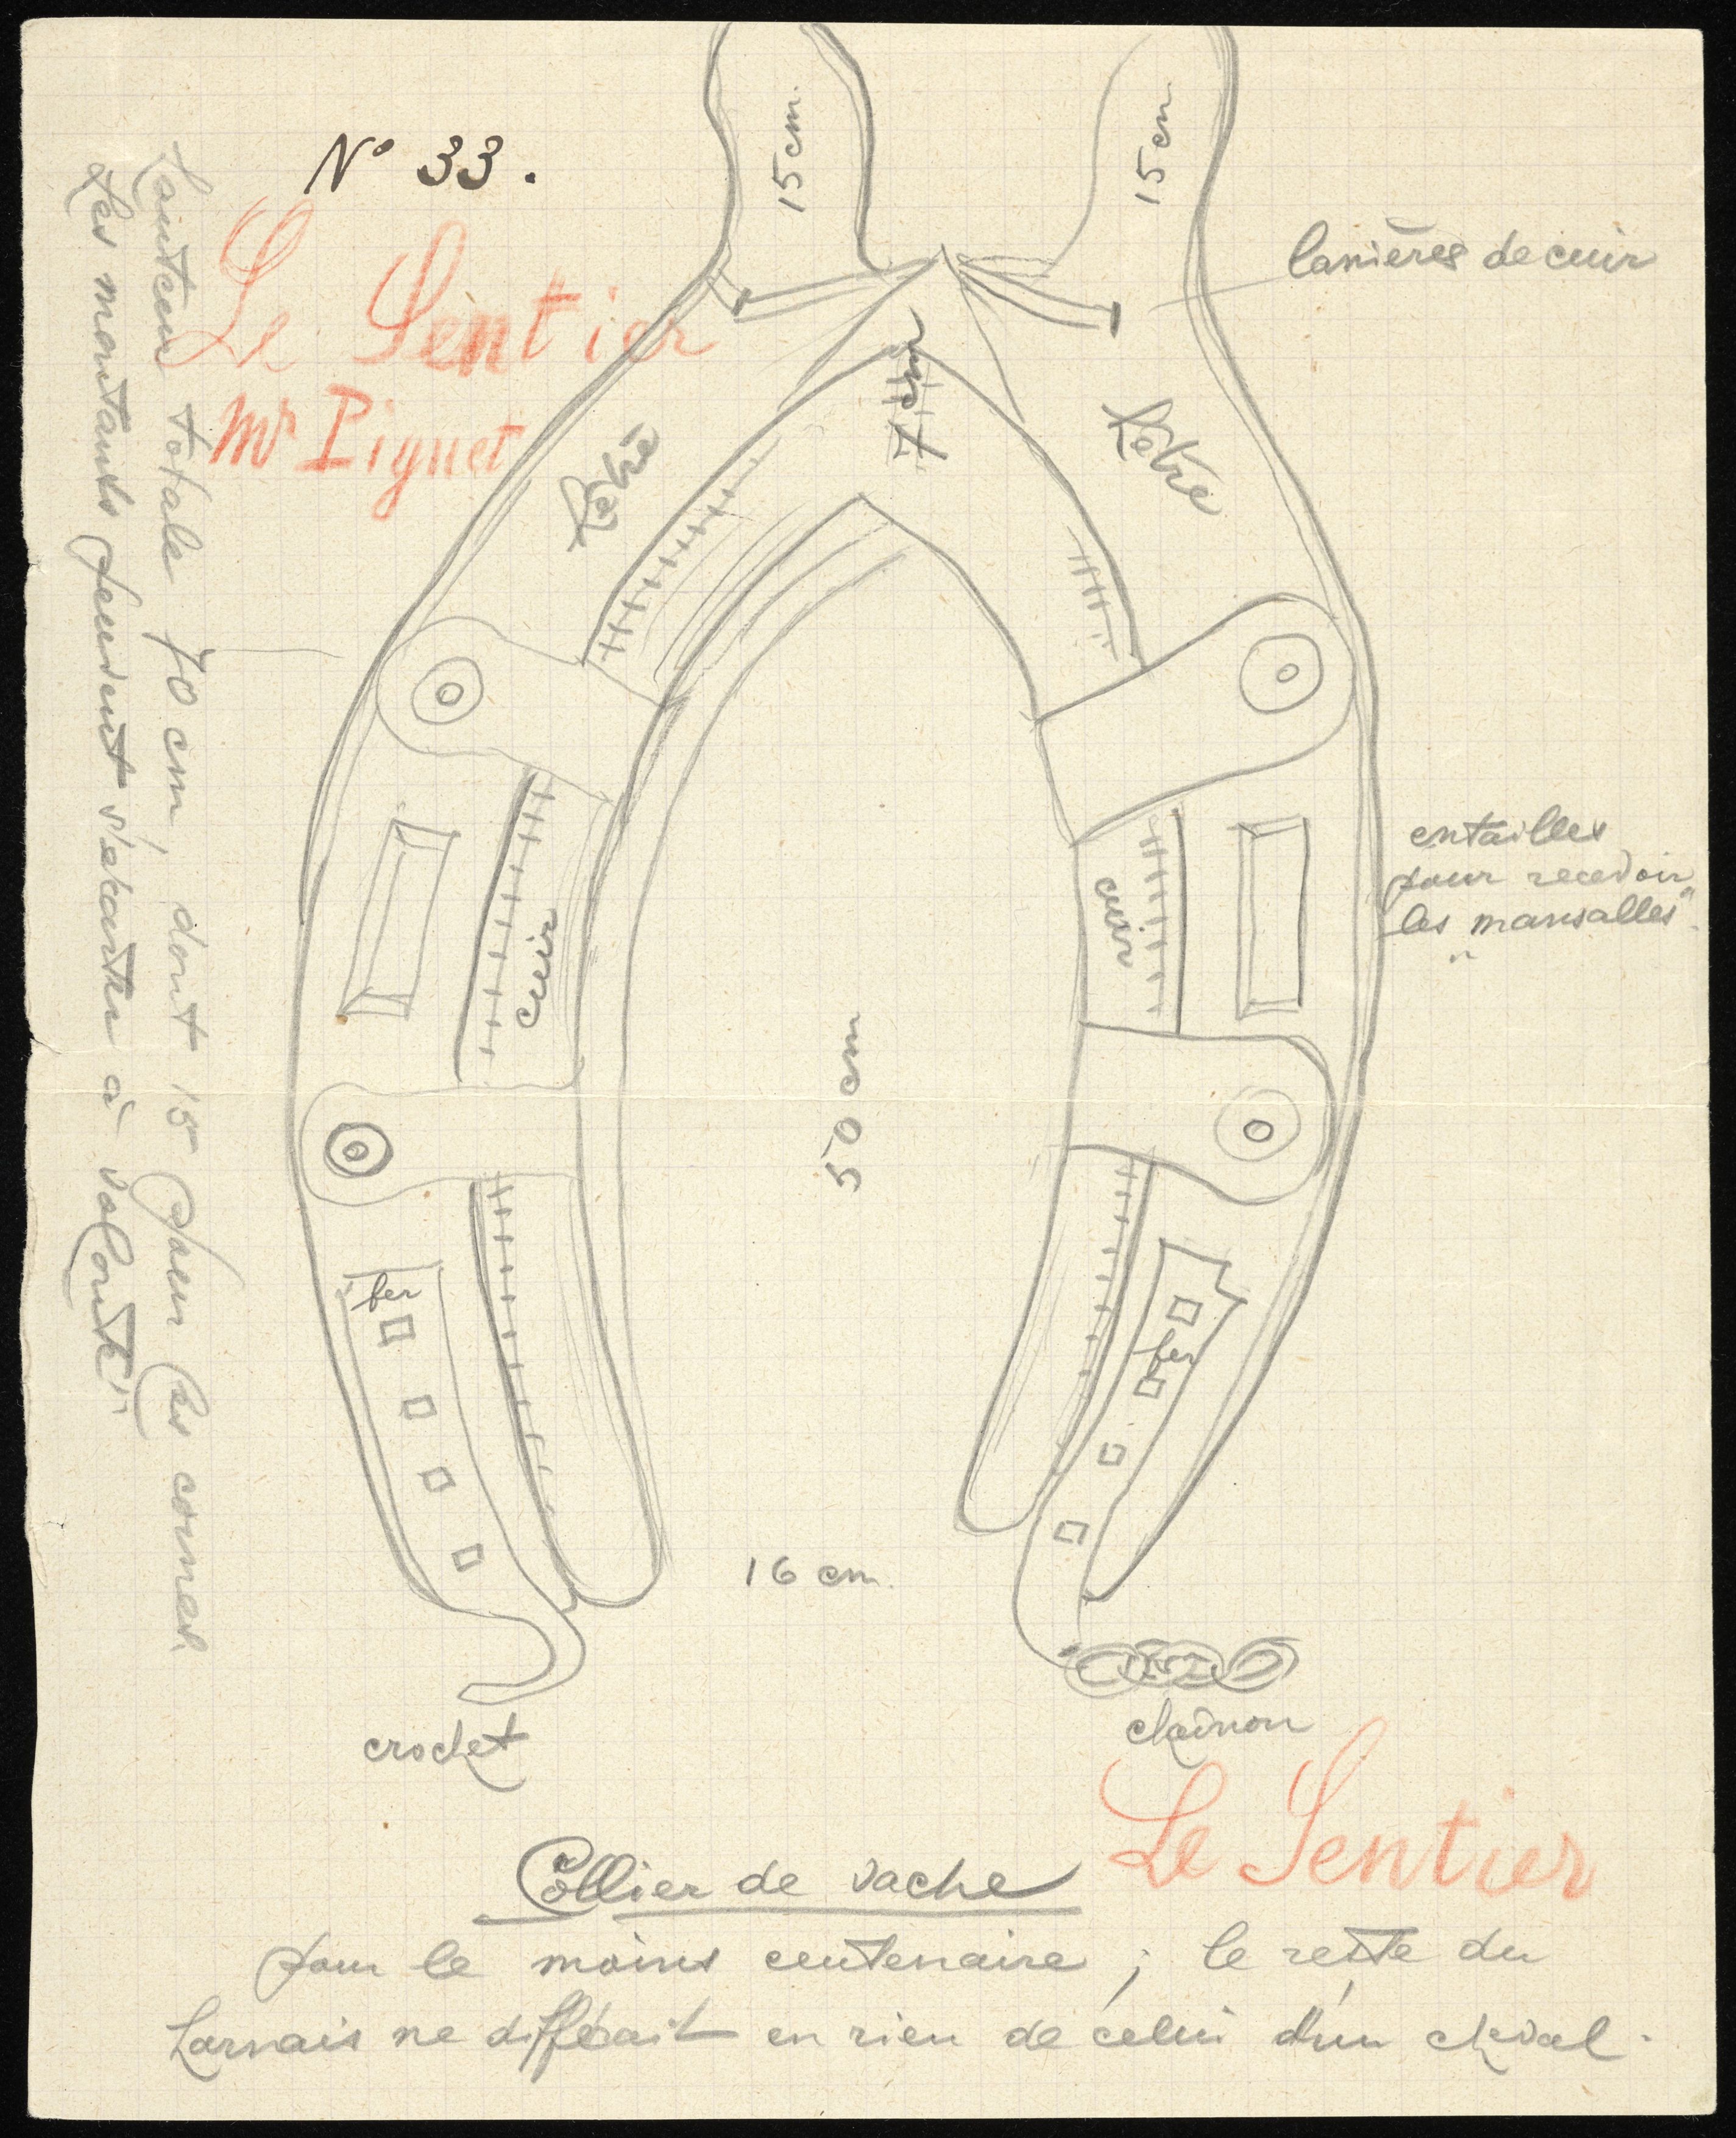 15 cm.
15 cm
N° 33.
Le Sentier
Mr Piguet
lanières de cuir
7 cm
hêtre
hêtre
entailles
pour recevoir
les "mansalles".
cuir
cuir
50 cm
fer
fer
16 cm.
crochet
chaînon
Hauteur totale 70 cm, dont 15 pour les cornes
Les montants peuvent s'écarter à volonté;
Le Sentier
Collier de vache
pour le moins centenaire; le reste du
harnais ne différait en rien de celui d'un cheval.